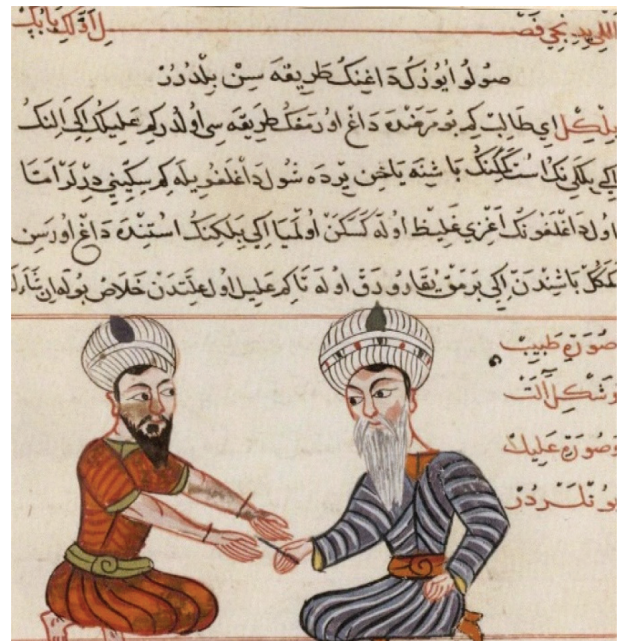 اللي يدنجي فصل اولكي بابك
صولو ايوزك داغينك طريقه سن بلدرر
بلكل اي طالب كم بو مرضده داغ اورمقك طريقه سي اولدر كم عليلك اكي النك
اكي بلكي نك باشنه ياخن يرده شول داغلغويله كم سكيني درلر اما
اول داغلغونك اغزي غليظ اوله كسكن اولميا اكي بلكنك استنده داغ اورسن
باشندن اكي برمق يقارودق اوله تاكم عليل اول علتدن خلاص بوله ان شاء
صورة طبيب
وشكل آلت
وصورة عليك
بونلردر